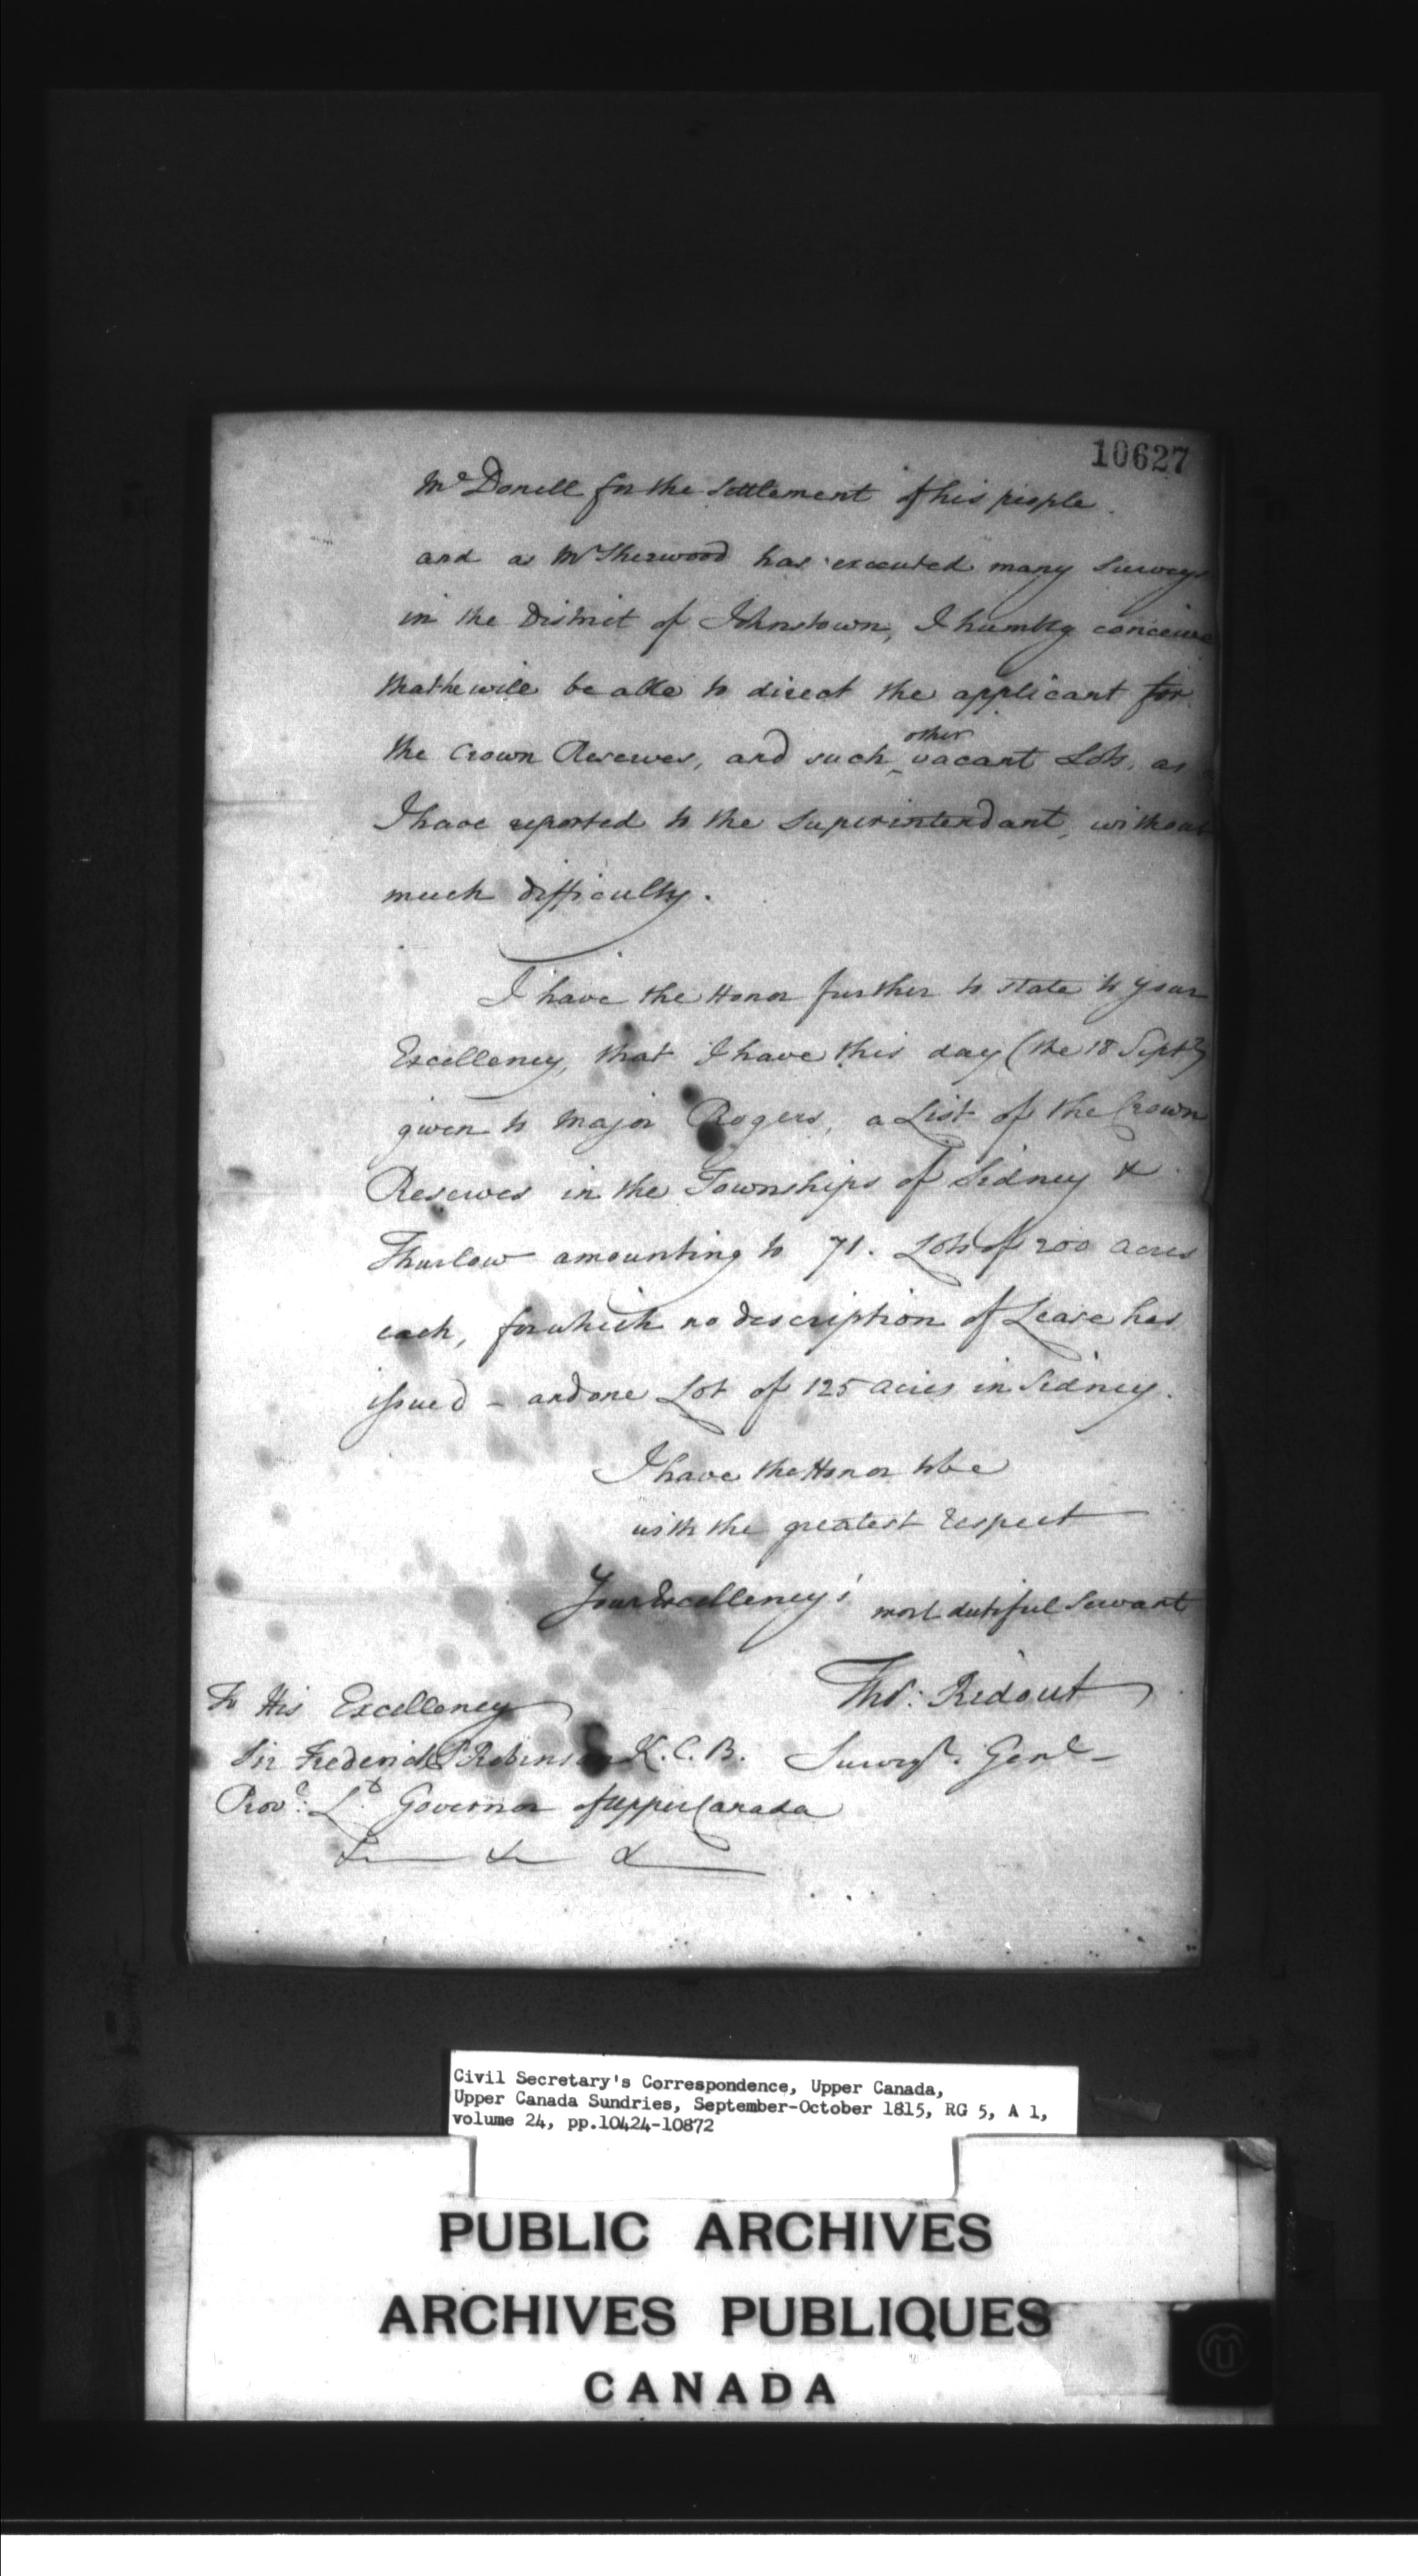 10627
McDonell for the Settlement of his people
and as Mr Sherwood has executed many Surveys
in the District of Johnstown, I humbly conceive
that he will be able to direct the applicant for
the Crown Reserves, and such ^other vacant Lots, as
I have reported to the Superintendant, without
much difficulty.
I have the Honor further to state to your
Excellency, that I have this day (the 18 Septr)
given to Major Rogers, a List of the Crown
Reserves in the Townships of Sidney &
Thurlow amounting to 71. Lots of 200 acres
each, for which no description of Lease has
issued - and one Lot of 125 acres in Sidney.
I have the Honor to be
with the greatest respect
Your Excellency's most dutiful Servant
Thos: Ridout
Survr. Genl -
To His Excellency
Sir Frederick P Robinson K.C.B.
Provl: Lt Governor of Upper Canada
& & &
Civil Secretary's Correspondence, Upper Canada,
Upper Canada Sundries, September-October 1815, RG 5, A 1,
volume 24, pp.10424-10872
PUBLIC ARCHIVES
ARCHIVES PUBLIQUES
CANADA